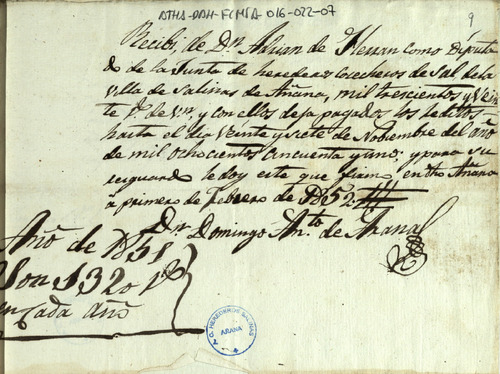 ATHA-DAH-FCMSA-016-022-07
9
Recibi de Dn. Adrian de Herran como Diputa
do de la Junta de herederos cosecheros de Sal de la
Villa de Salinas de Añana, mil trescientos y Vein
te rs. de vn. y con ellos deja pagados los reditos
hasta el dia Veinte y siete de Noviembre del año
de mil ochocientos cincuenta y uno; y para su
resguardo le doy este que firmo en dho Añana
á primero de Febrero de 1852
Dn. Domingo Anto. de Arana
Año de 1851
Son 1320 rs
en cada año
C. HEREDEROS SALINAS
AÑANA